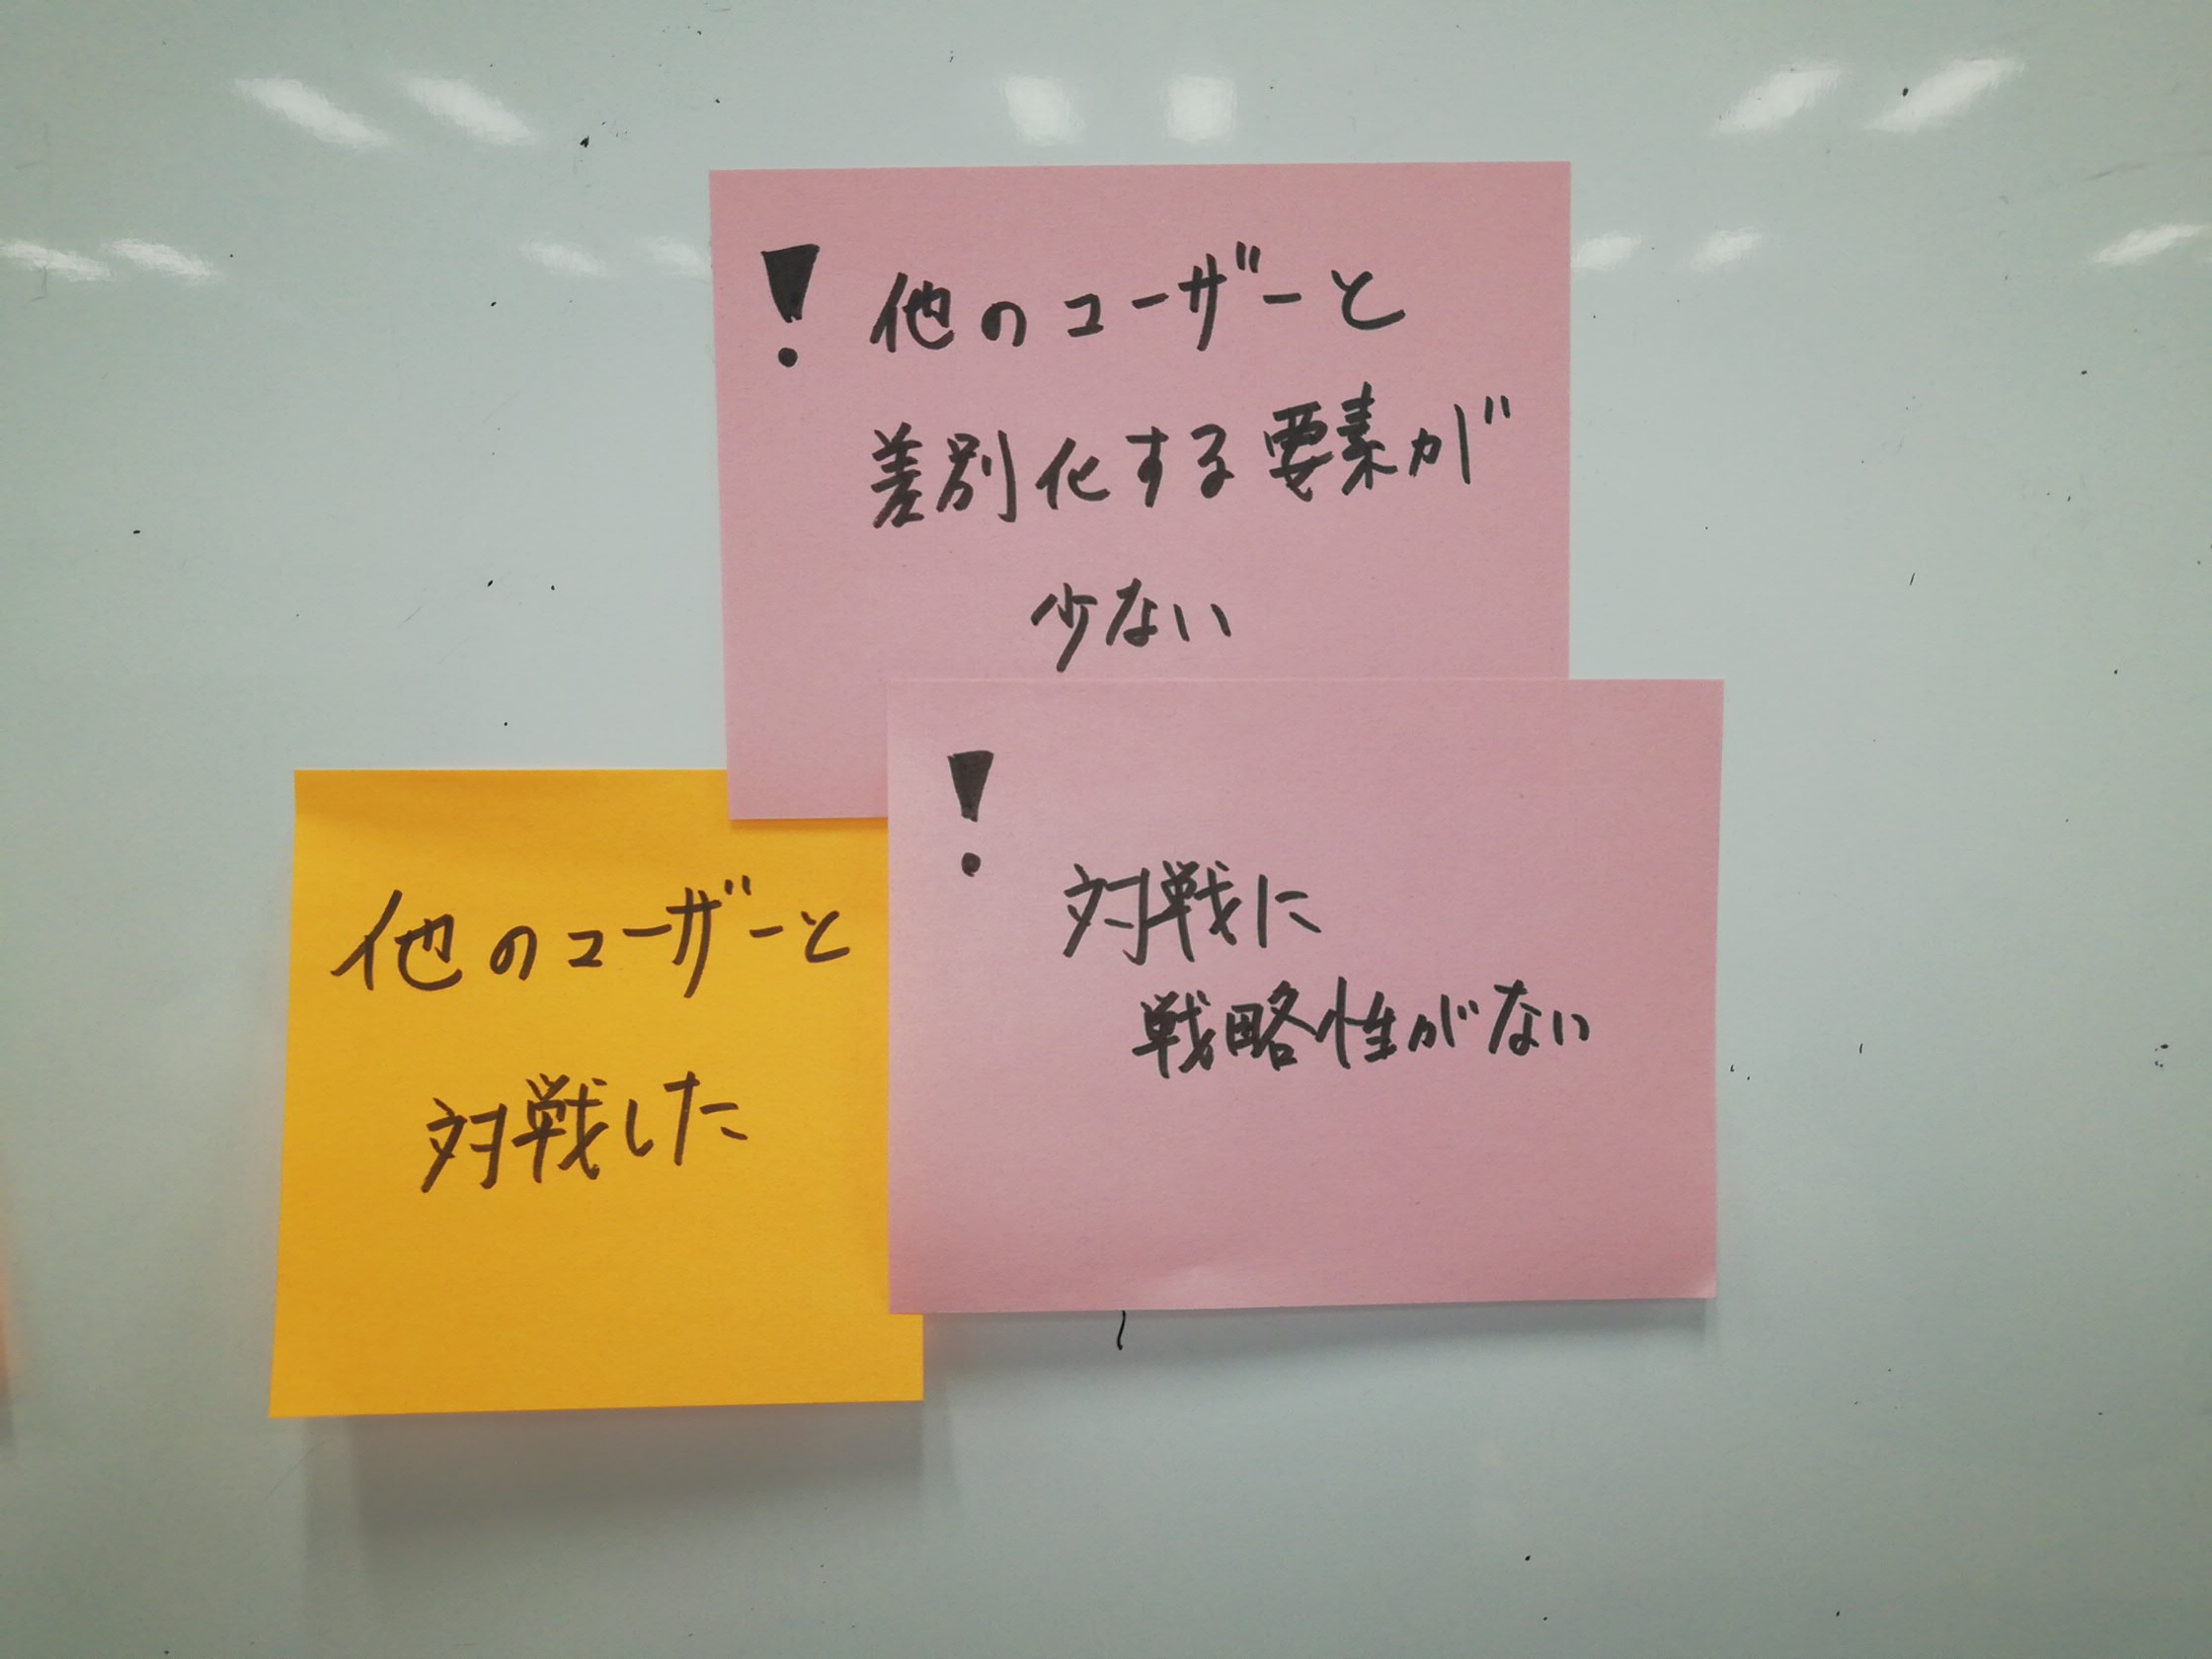 ! 他のユーザーと
差別化する要素が
少ない
他のユーザーと
対戦した
!
対戦に
戦略性がない